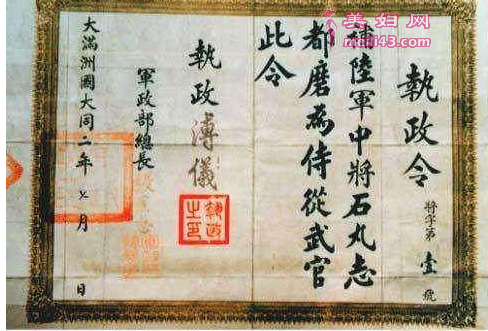 美妇网
執政令
將字第壹號
補陸軍中將石丸志
都磨為侍從武官
此令
執政 溥儀
執政之印
軍政部總長
大滿洲國大同二年七月 日